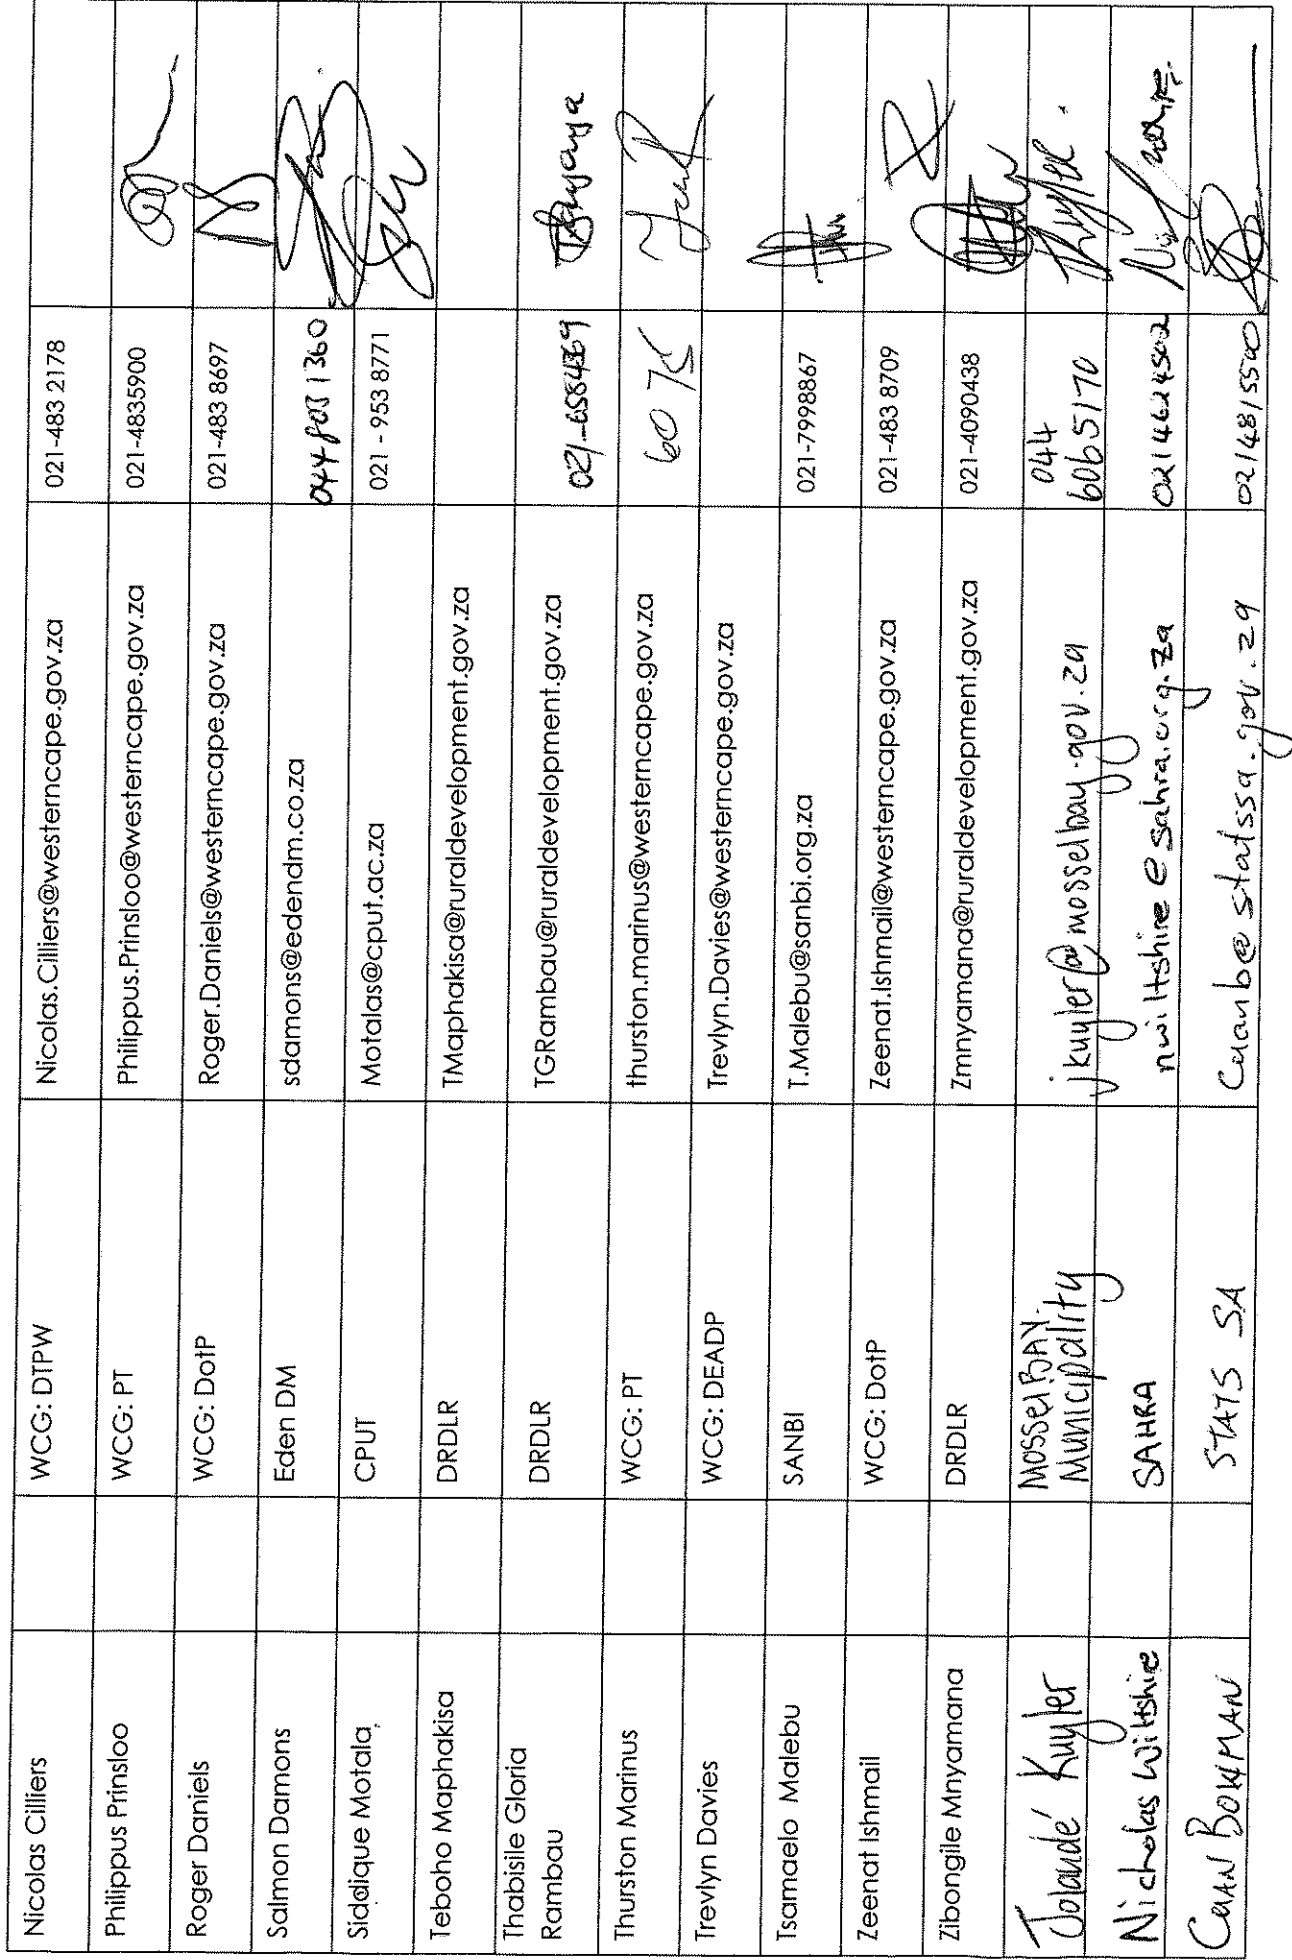 Nicolas Cilliers WCG: DTPW Nicolas.Cilliers@westerncape.gov.za 021-483 2178
Philippus Prinsloo WCG: PT Philippus.Prinsloo@westerncape.gov.za 021-4835900
Roger Daniels WCG: DotP Roger.Daniels@westerncape.gov.za 021-483 8697
Salmon Damons Eden DM sdamons@edendm.co.za 044 803 1360
Siddique Motala CPUT Motalas@cput.ac.za 021 - 953 8771
Teboho Maphakisa DRDLR TMaphakisa@ruraldevelopment.gov.za
Thabisile Gloria
Rambau DRDLR TGRambau@ruraldevelopment.gov.za
Thurston Marinus WCG: PT thurston.marinus@westerncape.gov.za 6075
Trevlyn Davies WCG: DEADP Trevlyn.Davies@westerncape.gov.za
Tsamaelo Malebu SANBI T.Malebu@sanbi.org.za 021-7998867
Zeenat Ishmail WCG: DotP Zeenat.Ishmail@westerncape.gov.za 021-483 8709
Zibongile Mnyamana DRDLR Zmnyamana@ruraldevelopment.gov.za 021-4090438
Jolandé Kuyler Mossel BAY Municipality jkuyler@mosselbay.gov.za 044 6065170
Nicholas Wiltshire SAHRA nwiltshire@sahra.org.za 0214624502
BOWMAN STATS SA 0214815500